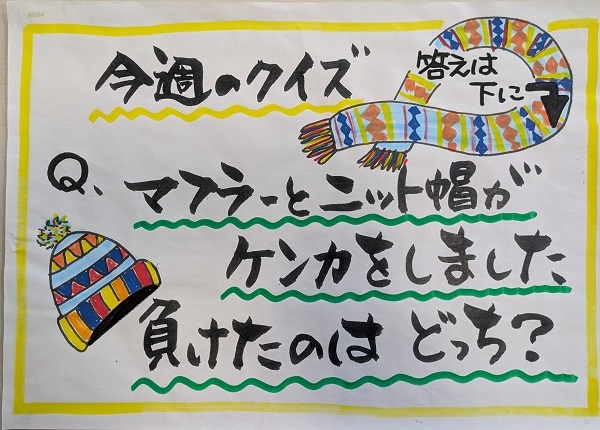 今週のクイズ
答えは
下に
Q、マフラーとニット帽が
ケンカをしました
負けたのは どっち?